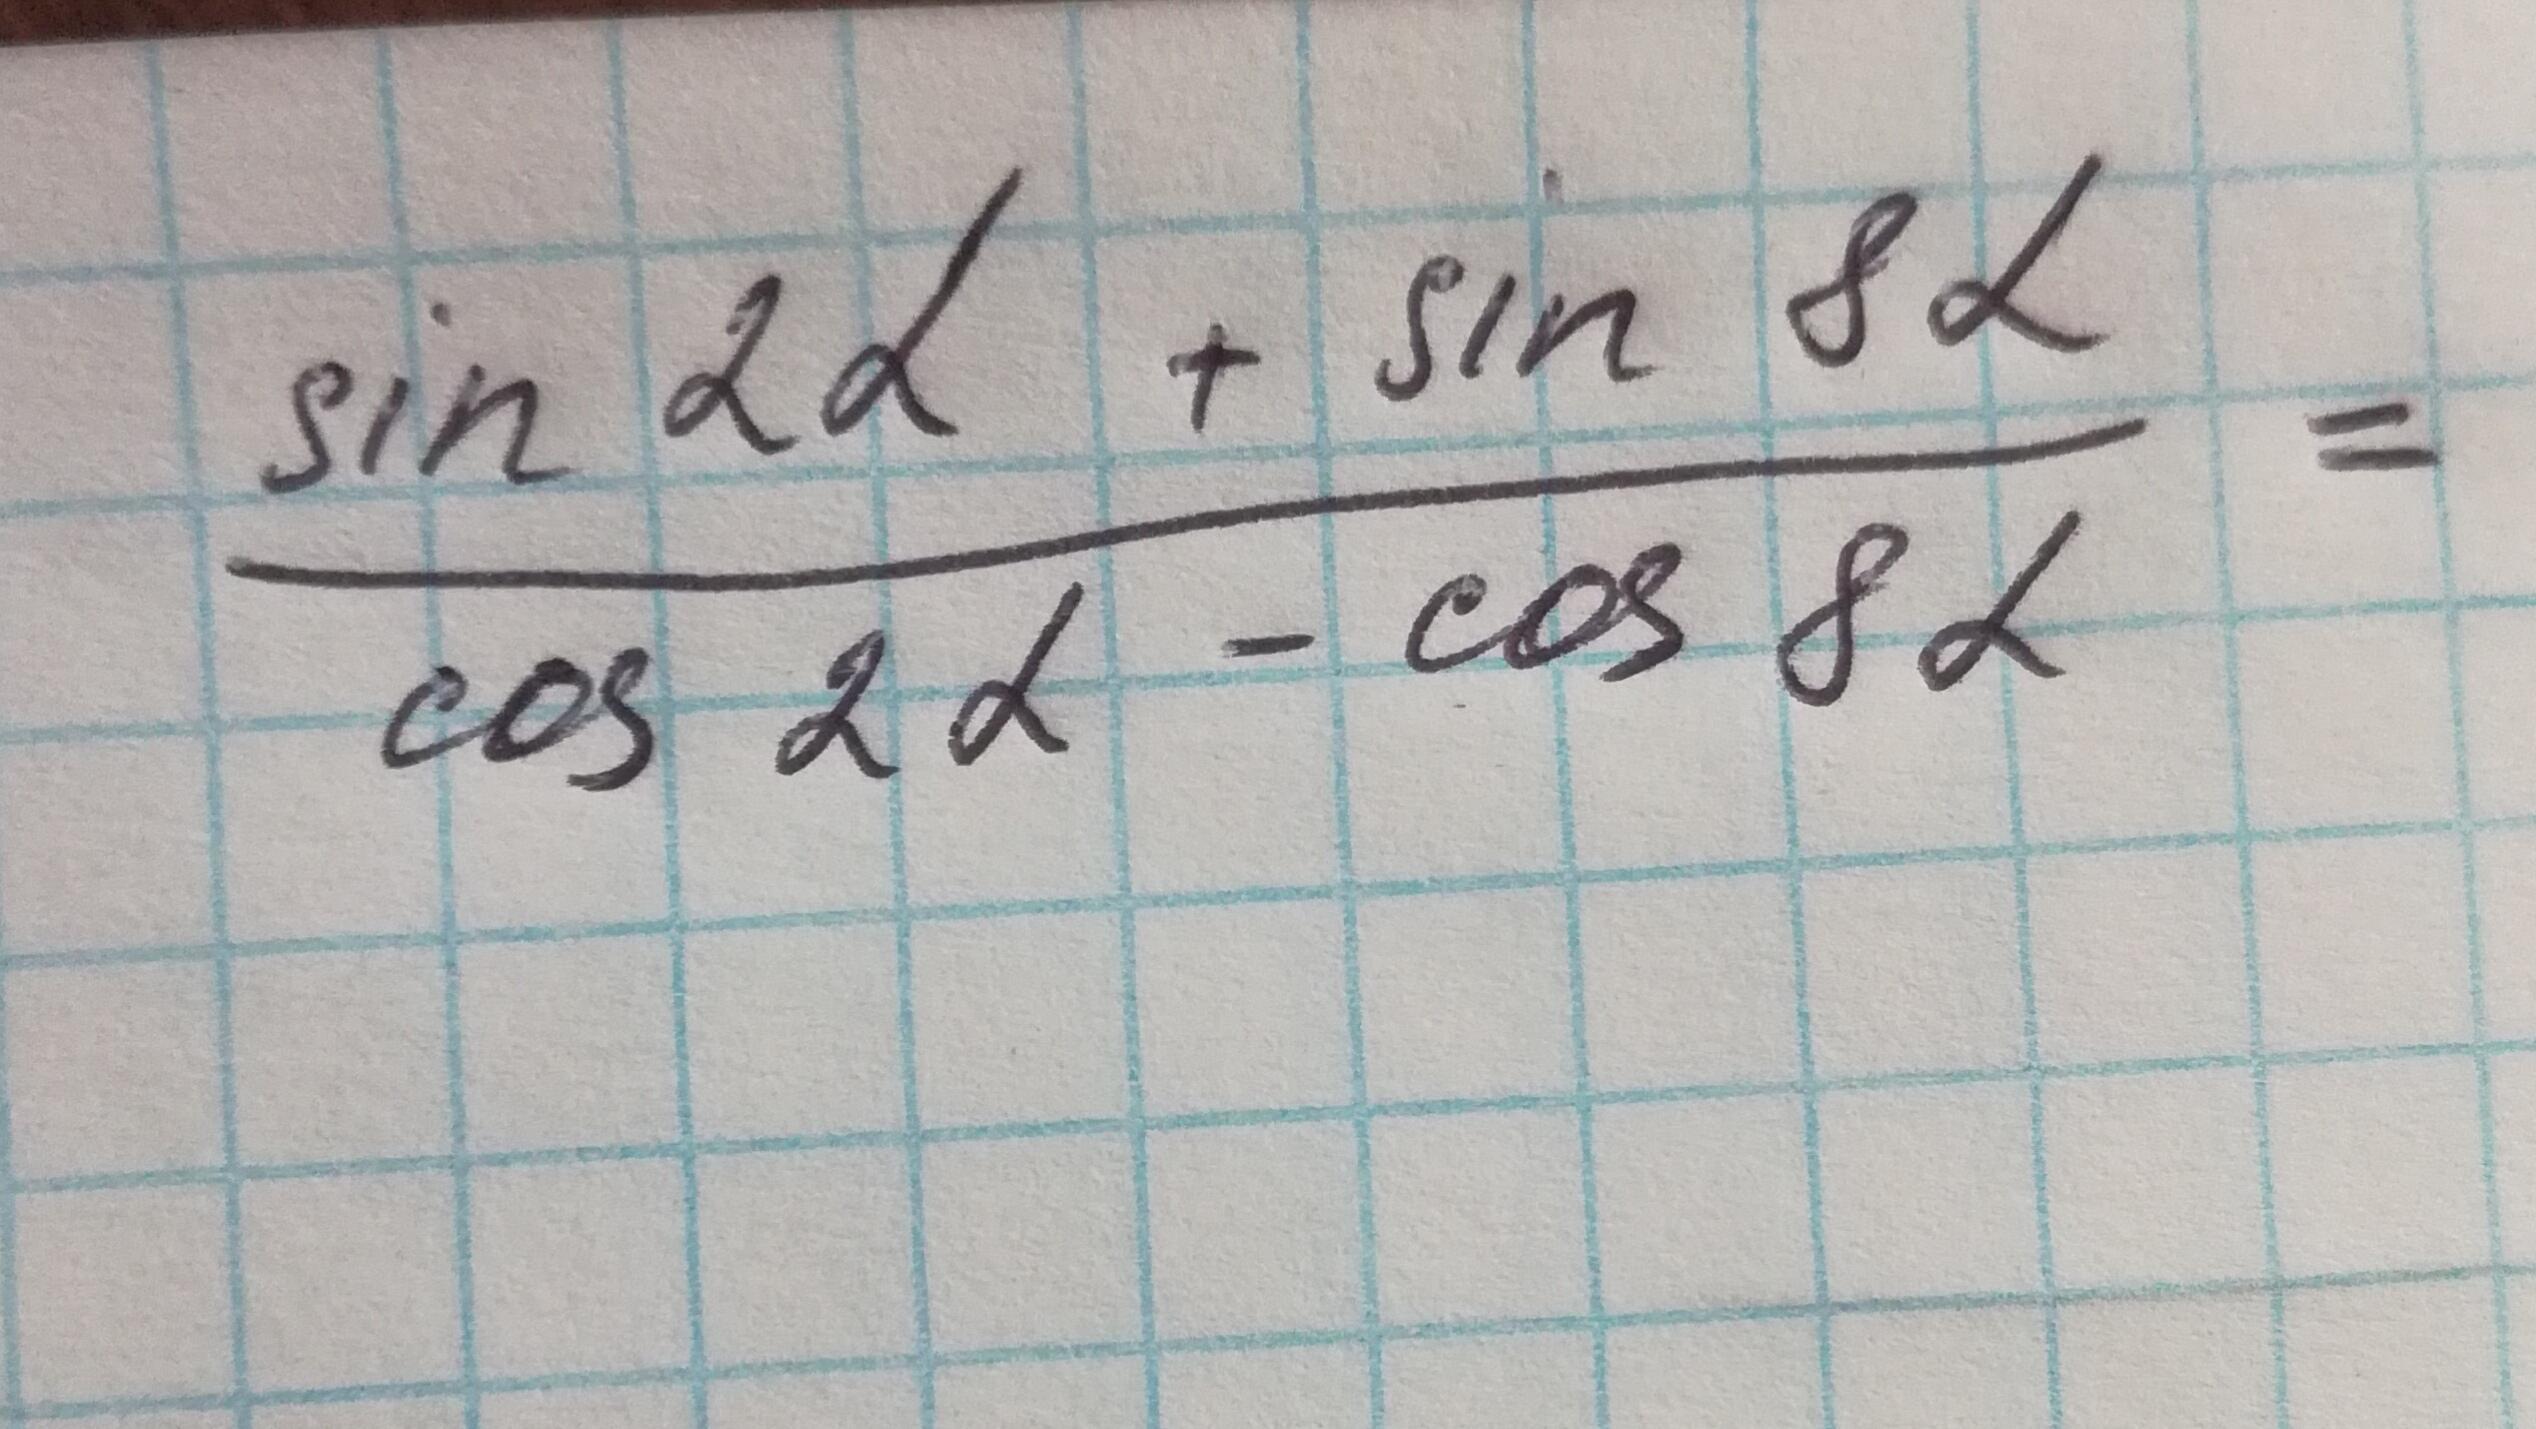 sin 2α + sin 8α =
cos 2α - cos 8α